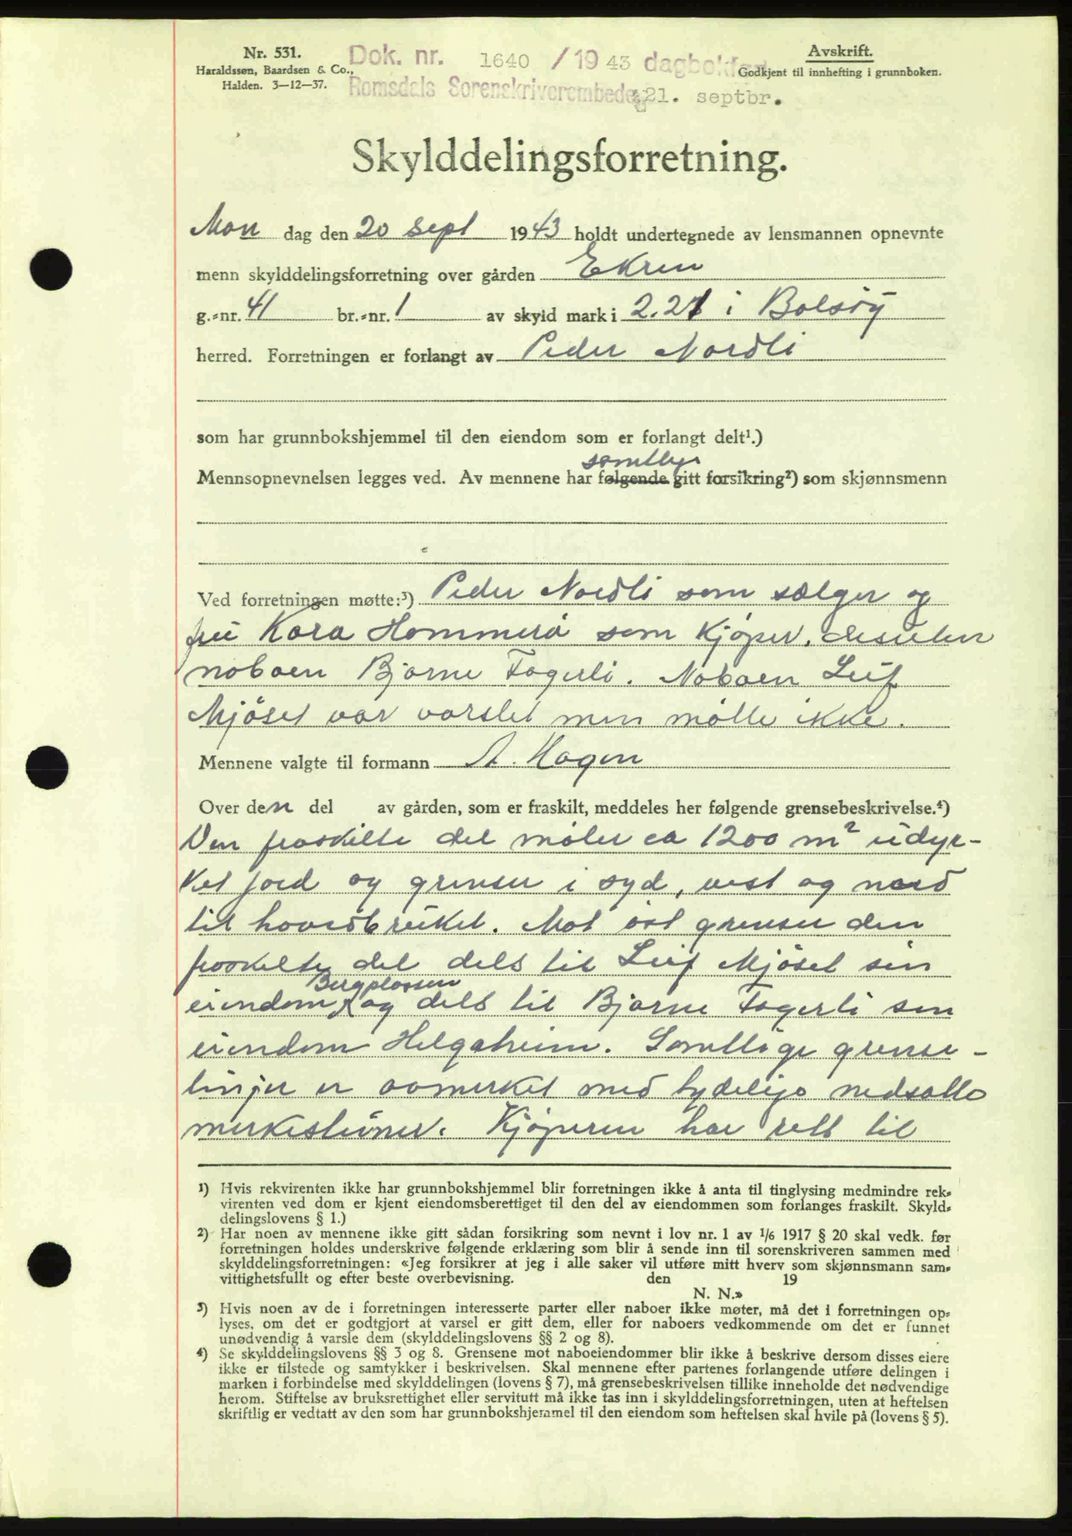 Nr. 531.
Haraldssøn, Baardsen & Co.,
Halden. 3—12—37.
Dok. nr. 1640 /1943 dagbokført
Romsdals Sorenskriverembede 21. septbr.
Avskrift.
Godkjent til innhefting i grunnboken.
Skylddelingsforretning.
Mon dag den 20 sept 1943 holdt undertegnede av lensmannen opnevnte
menn skylddelingsforretning over gården Ekren
g.-nr. 41 br.-nr. 1 av skyld mark i 2.21 i Bolsøy
herred. Forretningen er forlangt av Peder Nordli
som har grunnbokshjemmel til den eiendom som er forlangt delt¹.)
samtlige
Mennsopnevnelsen legges ved. Av mennene har følgende gitt forsikring²) som skjønnsmenn
Ved forretningen møtte:³) Peder Nordli som sælger og
fru Kara Hammerå som kjøper, desuten
naboen Bjarne Fagerli. Naboen Leif
Mjöset var varslet men møtte ikke.
Mennene valgte til formann A. Hagen
Over den del av gården, som er fraskilt, meddeles her følgende grensebeskrivelse.⁴)
Den fraskilte del måler ca 1200 m² udyr-
ket jord og grenser i syd, vest og nord
til hovedbruket. Mot öst grenser den
fraskilte del dels til Leif Mjöset sin
Bergplassen
eiendom og dels til Bjarne Fagerli sin
eiendom Helgaheim. Samtlige grense-
linjer er avmerket med tydelige nedsatte
merkestener. Kjøperen har rett til
¹) Hvis rekvirenten ikke har grunnbokshjemmel blir forretningen ikke å anta til tinglysing medmindre rek-
virenten ved dom er kjent eiendomsberettiget til den del av eiendommen som forlanges fraskilt. Skyld-
delingslovens § 1.)
²) Har noen av mennene ikke gitt sådan forsikring som nevnt i lov nr. 1 av 1/6 1917 § 20 skal vedk. før
forretningen holdes underskrive følgende erklæring som blir å sende inn til sorenskriveren sammen med
skylddelingsforretningen: «Jeg forsikrer at jeg i alle saker vil utføre mitt hverv som skjønnsmann sam-
vittighetsfullt og efter beste overbevisning. den 19
N. N.»
³) Hvis noen av de i forretningen interesserte parter eller naboer ikke møter, må det i forretningen op-
lyses, om det er godtgjort at varsel er gitt dem, eller for naboers vedkommende om det er funnet
unødvendig å varsle dem (skylddelingslovens §§ 2 og 8).
⁴) Se skylddelingslovens §§ 3 og 8. Grensene mot naboeiendommer blir ikke å beskrive dersom disses eiere
ikke er tilstede og samtykker i beskrivelsen. Skal mennene efter partenes forlangende utføre delingen i
marken i forbindelse med skylddelingen (lovens § 7), må grensebeskrivelsen tillike inneholde det nødvendige
herom. Stiftelse av bruksrettighet eller servitutt må ikke tas inn i skylddelingsforretningen, uten at heftelsen
skriftlig er vedtatt av den som har grunnbokshjemmel til den eiendom som heftelsen skal hvile på (lovens § 5).